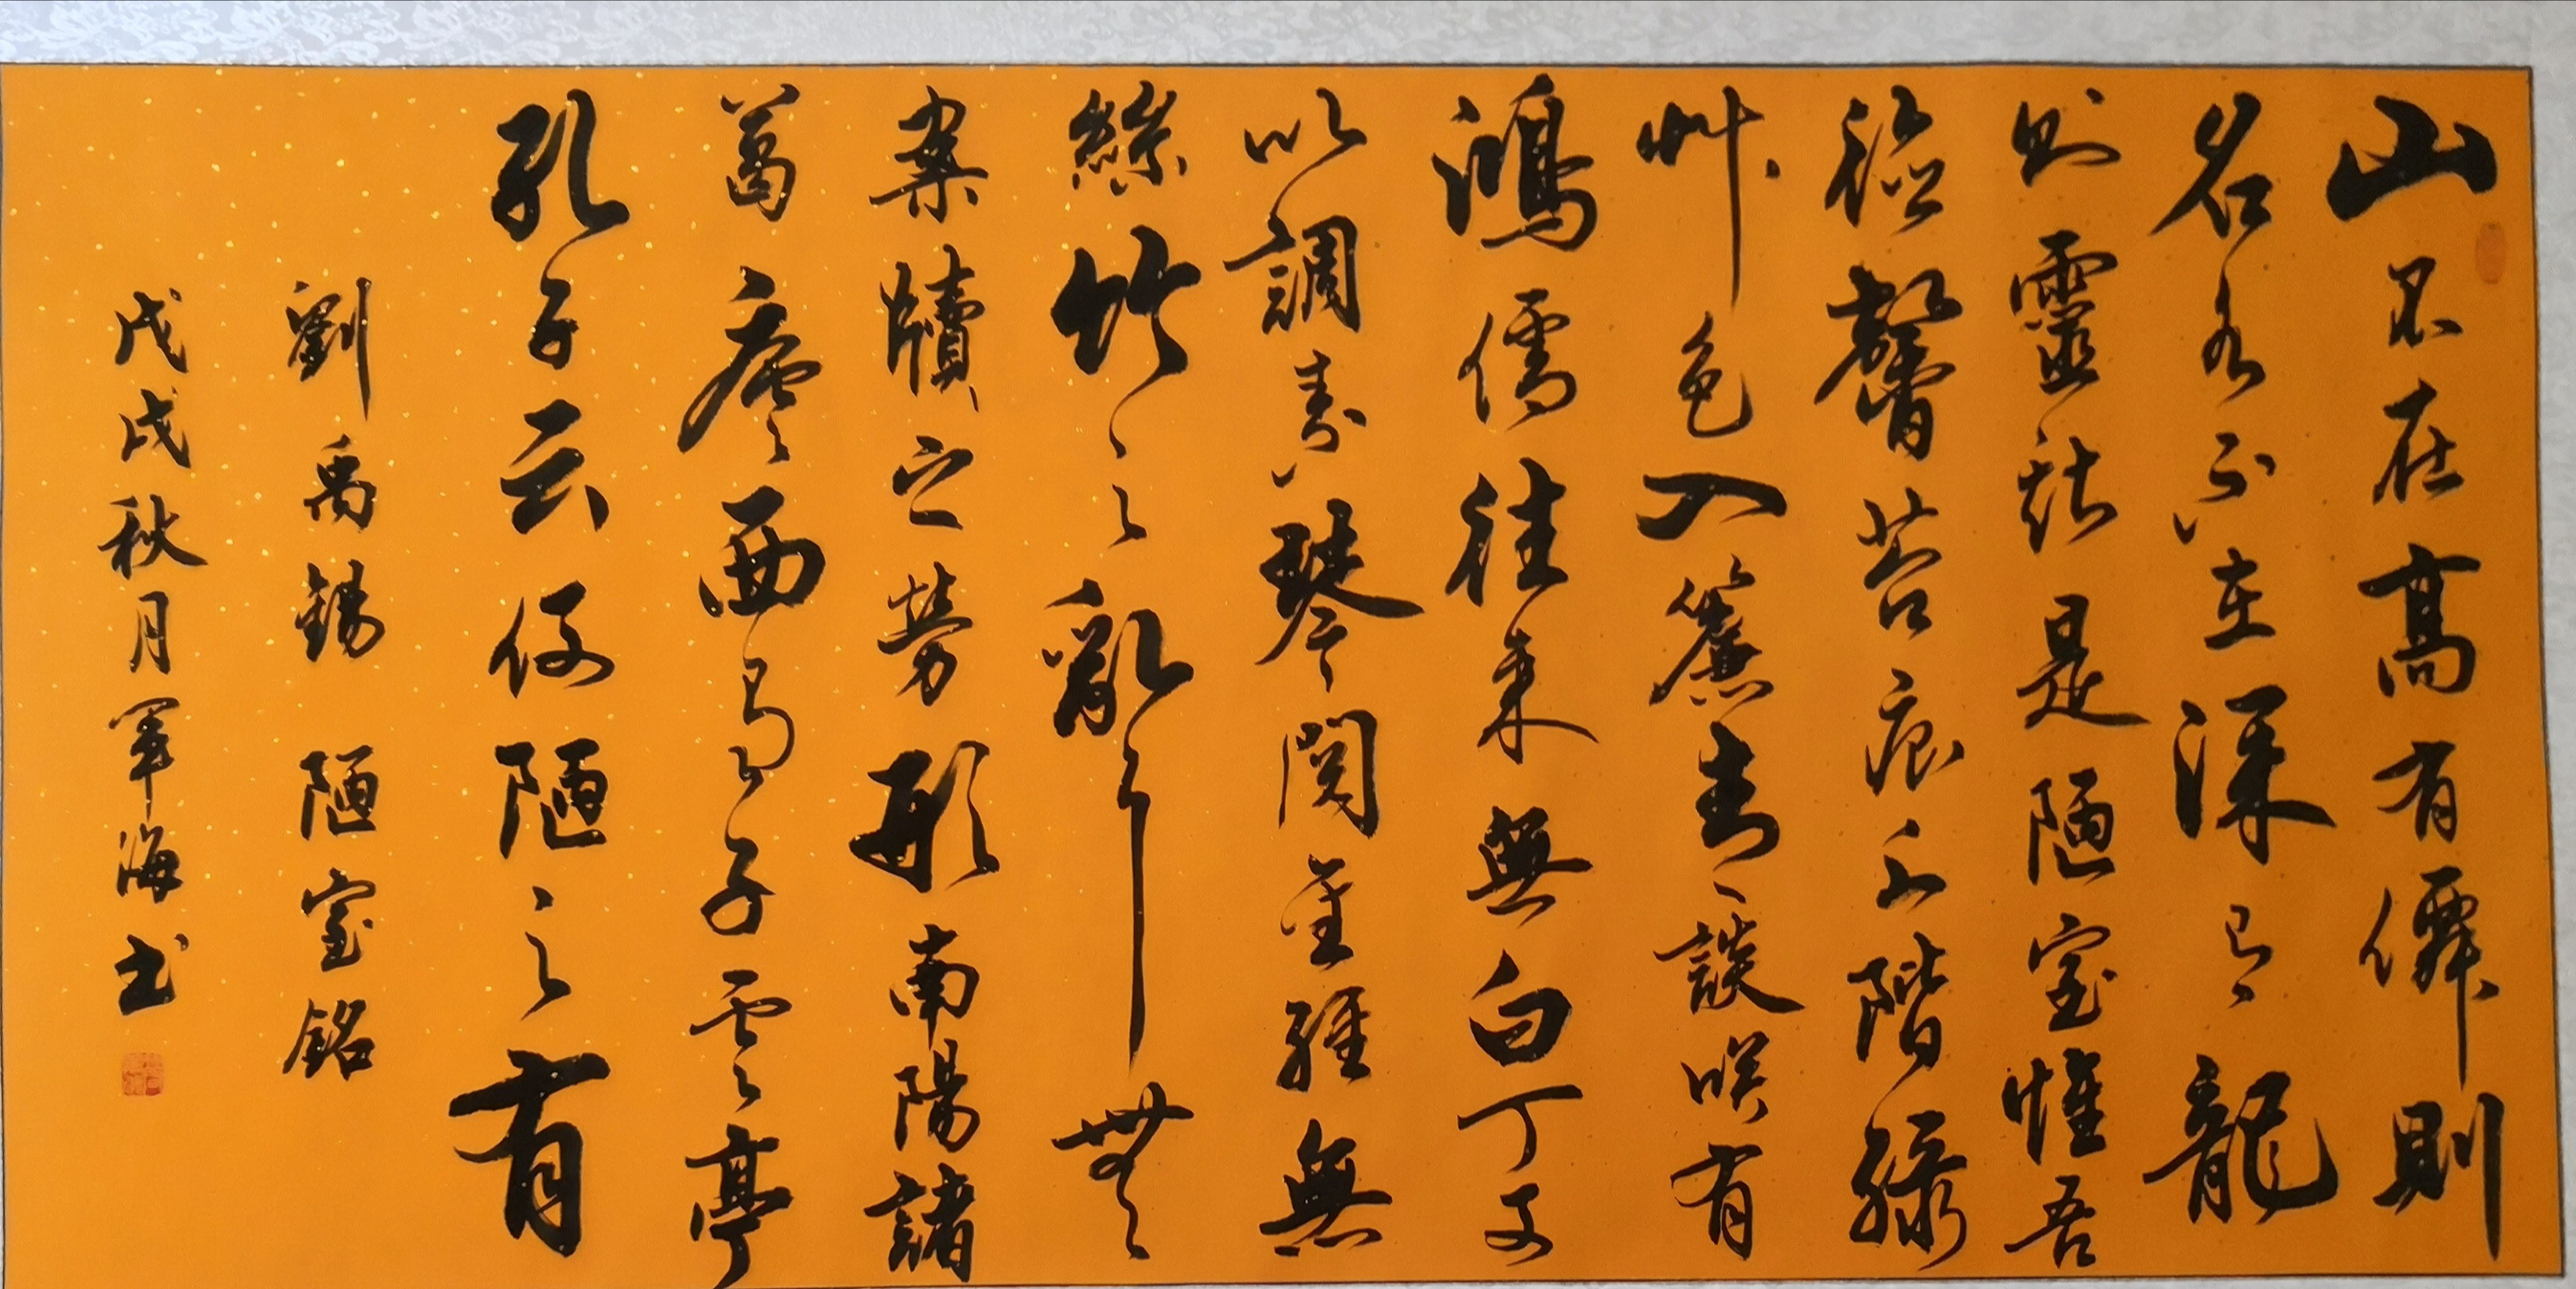 山不在高有僊則
名水不在深有龍
則靈斯是陋室惟吾
德馨苔痕上階綠
艸色入簾青談咲有
鴻儒往來無白丁可
以調素琴閱金經無
絲竹之亂耳無
案牘之勞形南陽諸
葛廬西蜀子雲亭
孔子云何陋之有
劉禹錫 陋室銘
戊戌秋月軍海书